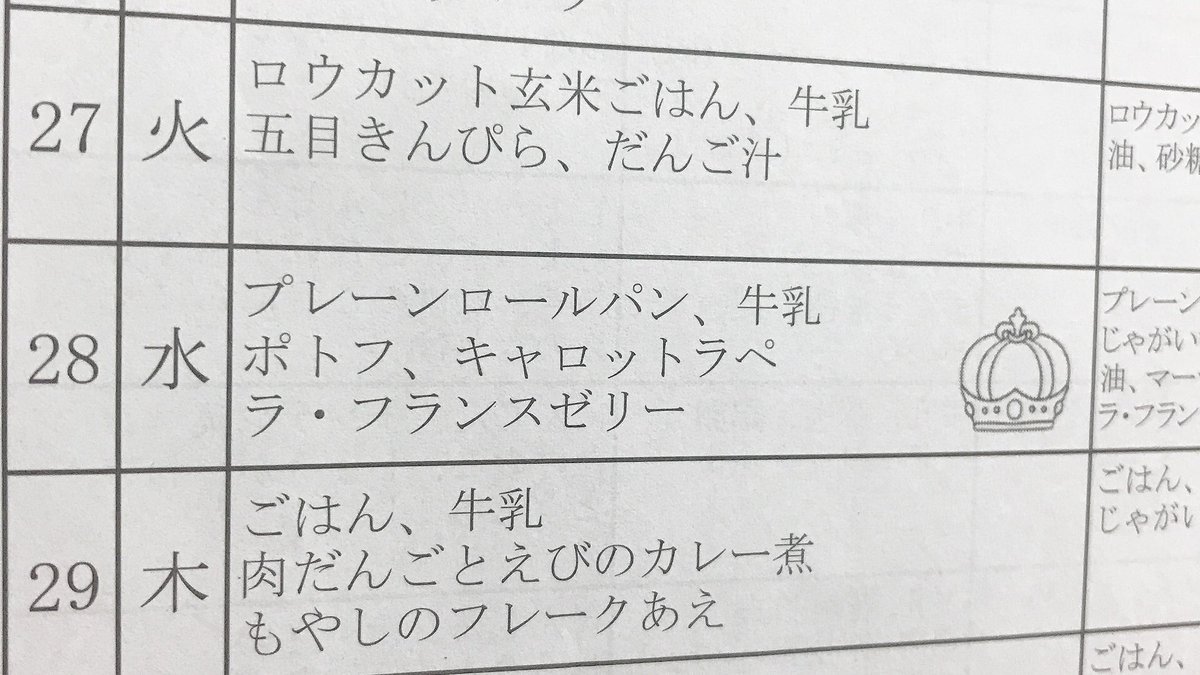 27 火 ロウカット玄米ごはん、牛乳
五目きんぴら、だんご汁
ロウカッ
油、砂糖
28 水 プレーンロールパン、牛乳
ポトフ、キャロットラペ
ラ・フランスゼリー
プレーン
じゃがい
油、マー
ラ・フラン
29 木 ごはん、牛乳
肉だんごとえびのカレー煮
もやしのフレークあえ
ごはん、
じゃがい
ごはん、